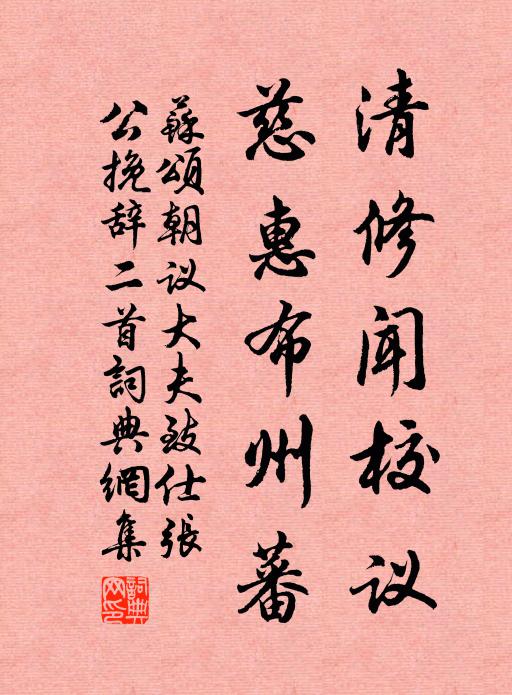 清修闻校议
慈惠布州蕃
蘇頌朝议大夫致仕張
公挽辞二首詞典網集
詞典网印